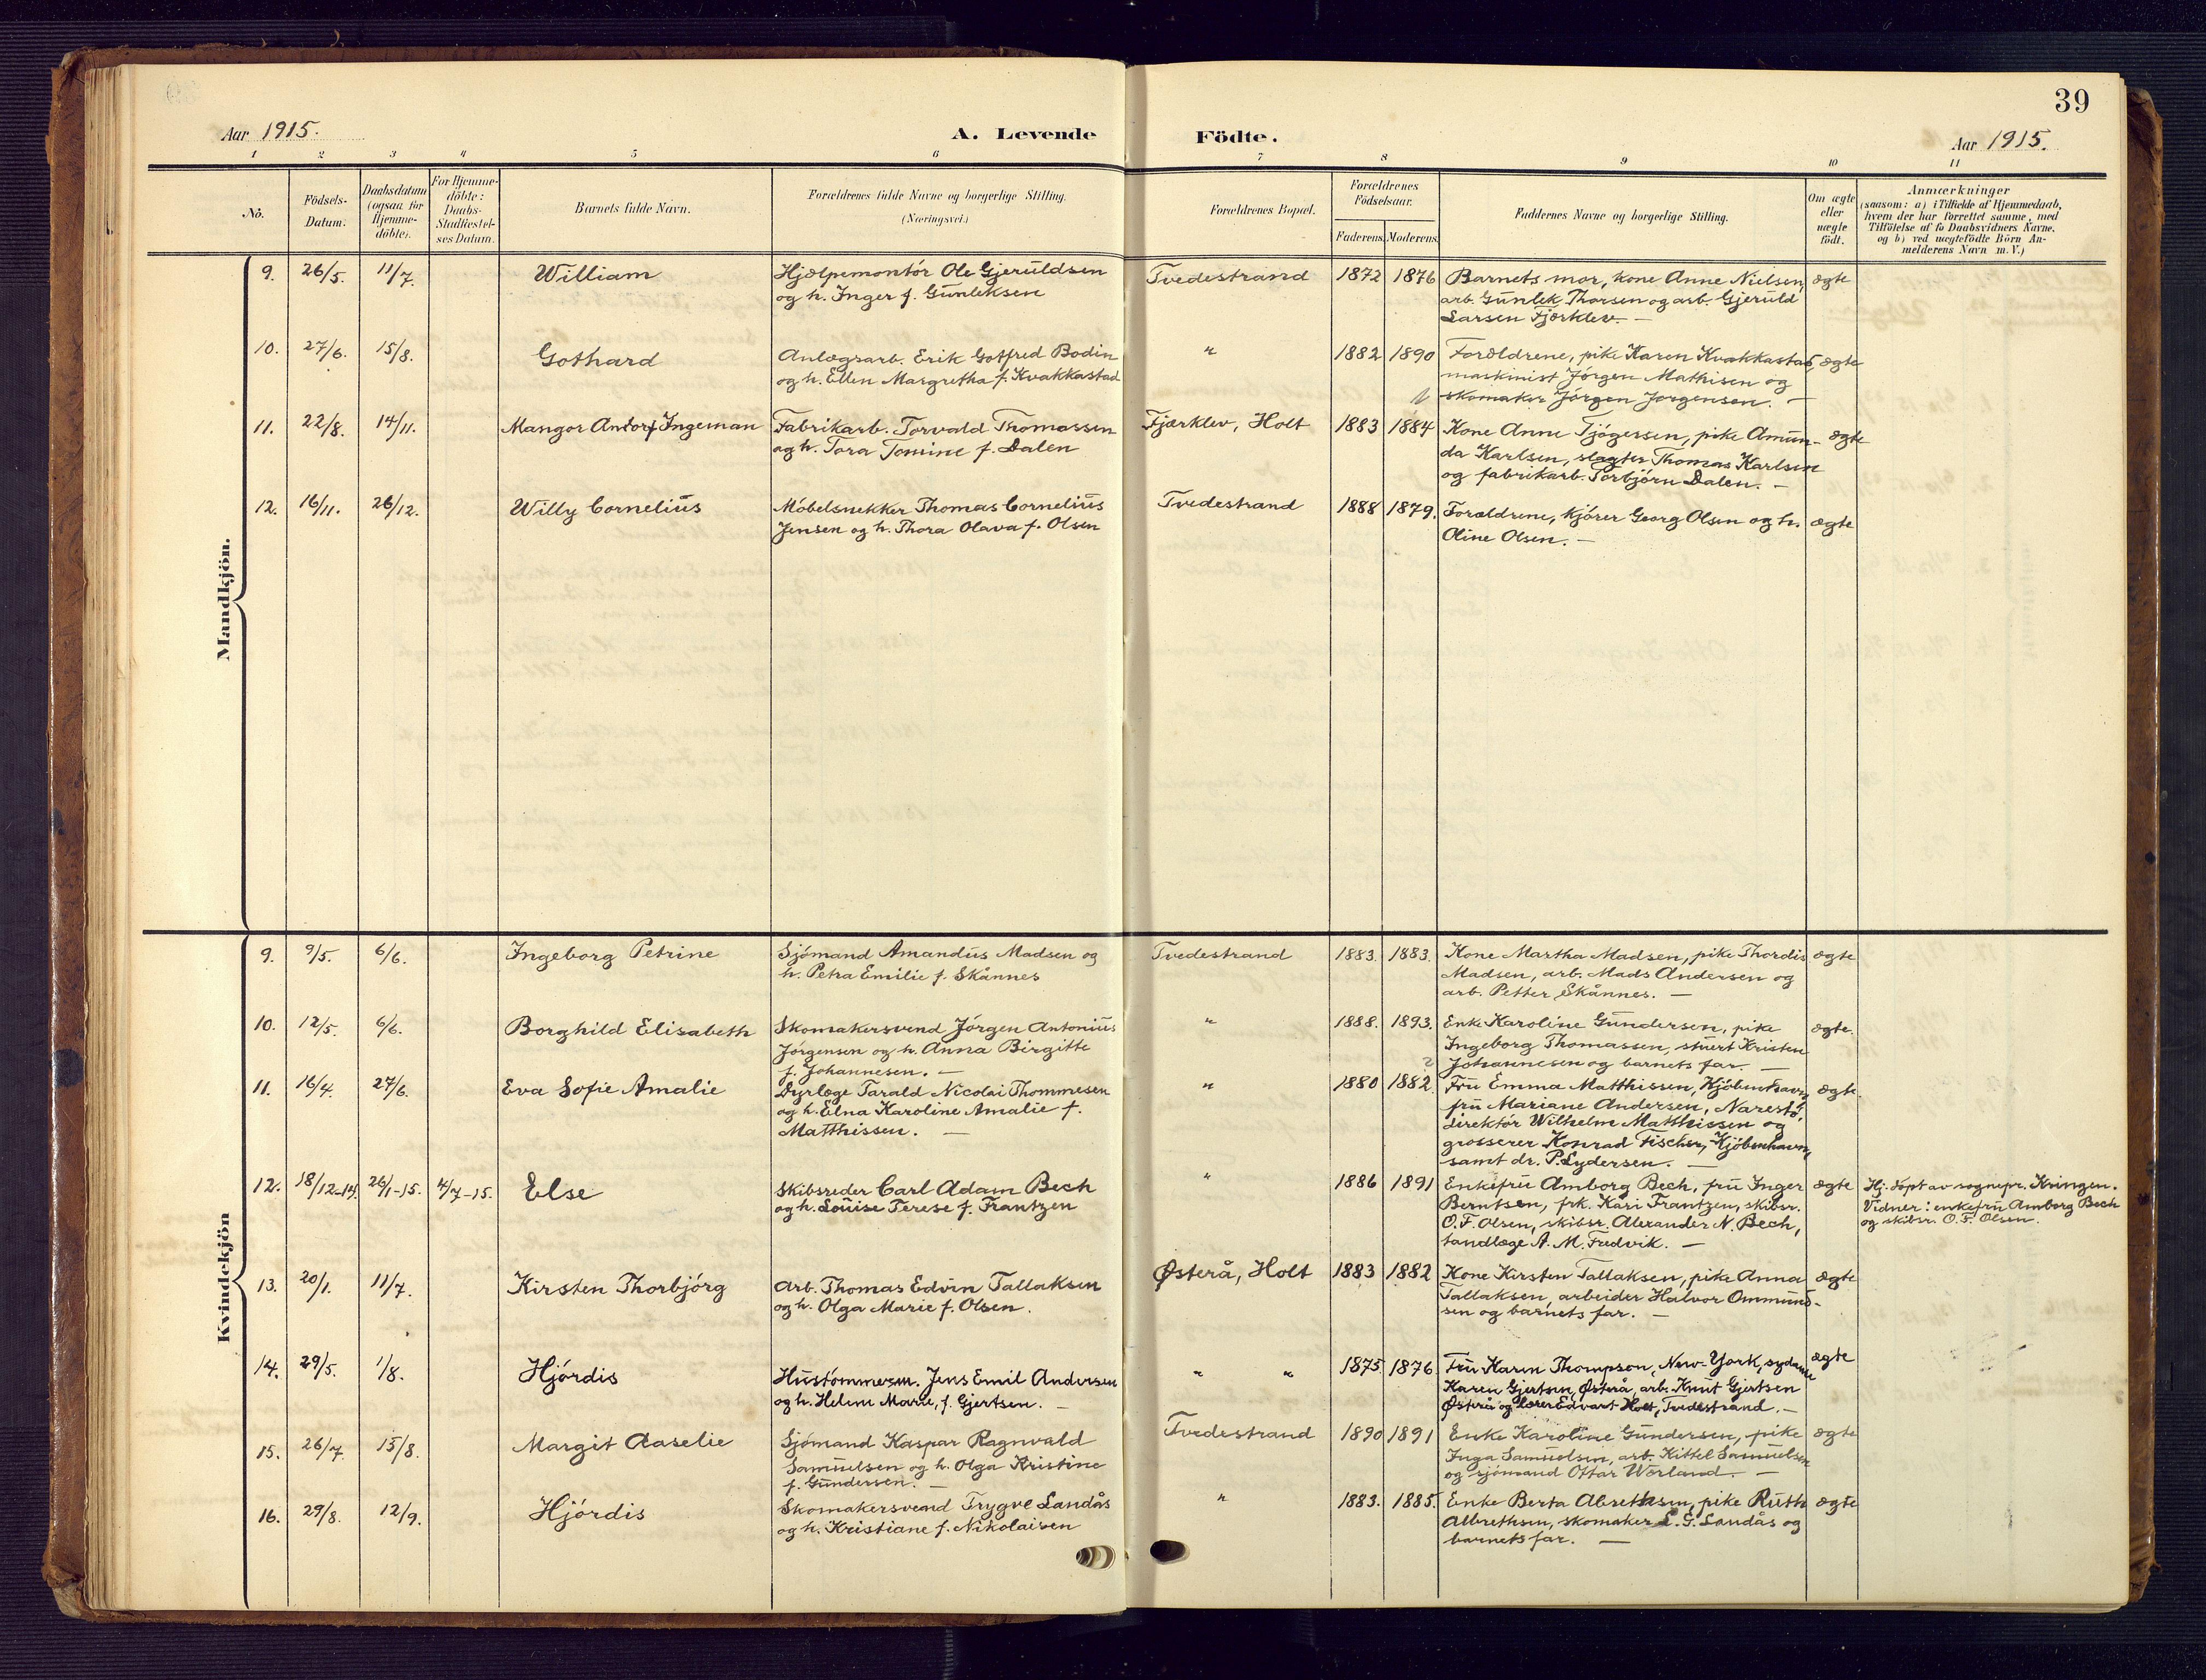 39
Aar 1915.
A. Levende
Födte.
Aar 1915.
1 2 3 4 5 6 7 8 9 10 11
Nö.
Födsels-
Datum.
Daabsdatum
(ogsaa for
Hjemme-
döbte).
For Hjemme-
döbte:
Daabs-
Stadfæstel-
ses Datum.
Barnets fulde Navn.
Forældrenes fulde Navne og borgerlige Stilling.
(Næringsvei.)
Forældrenes Bopæl.
Forældrenes
Födselsaar.
Faderens. Moderens.
Faddernes Navne og borgerlige Stilling.
Om ægte
eller
uægte
födt.
Anmærkninger
(saasom: a) i Tilfælde af Hjemmedaab,
hvem der har forrettet samme, med
Tilföielse af to Daabsvidners Navne,
og b) ved uægtefödte Börn An-
melderens Navn m. V.)
Mandkjön.
9. 26/5. 11/7. William
Hjælpemontör Ole Gjeruldsen
og h. Inger f. Gunleksen
Tvedestrand 1872 1876
Barnets mor, kone Anne Nielsen,
arb. Gunlek Thorsen og arb. Gjeruld
Larsen Fjærklev. —
ægte
10. 27/6. 15/8. Gothard
Anlægsarb. Erik Gotfred Bodin
og h. Ellen Margretha f. Kvakkastad
" 1882 1890
Forældrene, pike Karen Kvakkastad,
maskinist Jörgen Mathisen og
skomaker Jörgen Jorgensen. —
ægte
11. 22/8. 14/11. Mangor Andorf Ingeman
Fabrikarb. Torvald Thomassen
og h. Tora Tomine f. Dalen
Fjærklev, Holt 1883 1884
Kone Anne Tjögersen, pike Amun-
da Karlsen, slagter Thomas Karlsen
og fabrikarb. Torbjörn Dalen. —
ægte
12. 16/11. 26/12. Willy Cornelius
Möbelsnekker Thomas Cornelius
Jensen og h. Thora Olava f. Olsen
Tvedestrand 1888 1879.
Forældrene, kjörer Georg Olsen og h.
Oline Olsen. —
ægte
Kvindekjön
9. 9/5. 6/6. Ingeborg Petrine
Sjömand Amandus Madsen og
h. Petra Emilie f. Skånnes
Tvedestrand 1883. 1883.
Kone Martha Madsen, pike Thordis
Madsen, arb. Mads Andersen og
arb. Petter Skånnes. —
ægte
10. 12/5. 6/6. Borghild Elisabeth
Skomakersvend Jörgen Antonius
Jörgensen og h. Anna Birgitte
f. Johannesen. —
" 1888. 1893.
Enke Karoline Gundersen, pike
Ingeborg Thomassen, stuert Kristen
Johannesen og barnets far. —
ægte.
11. 16/4. 27/6. Eva Sofie Amalie
Dyrlæge Tarald Nicolai Thommesen
og h. Elna Karoline Amalie f.
Matthissen. —
" 1880 1882
Fru Emma Matthissen, Kjöbenhavn,
fru Mariane Andersen, Narestö,
direktör Wilhelm Matthissen og
grosserer Konrad Fischer, Kjöbenhavn,
samt dr. P. Lydersen. —
ægte.
12. 18/12-14. 26/1-15. 4/7-15. Else
Skibsreder Carl Adam Bech
og h. Louise Terese f. Frantzen
" 1886 1891
Enkefru Amborg Bech, fru Inger
Berntsen, frk. Kari Frantzen, skibsr.
O. F. Olsen, skibsr. Alexander N. Bech,
tandlæge A. M. Fredvik. —
ægte
Hj. döpt av sognepr. Kringen.
Vidner: enkefru Amborg Bech
og skibsr. O. F. Olsen.
13. 20/1. 11/7. Kirsten Thorbjörg
Arb. Thomas Edvin Tallaksen
og h. Olga Marie f. Olsen.
Østerå, Holt 1883 1882
Kone Kirsten Tallaksen, pike Anna
Tallaksen, arbeider Halvor Ommund-
sen og barnets far. —
ægte
14. 29/5. 1/8. Hjördis
Hustömmerm. Jens Emil Andersen
og h. Helene Marie, f. Gjertsen. —
" " 1875. 1876
Fru Karen Thompson, New-York, sydame
Karen Gjertsen, Østerå, arb. Knut Gjertsen
Østerå og lærer Edvart Holt, Tvedestrand. —
ægte
15. 26/7. 15/8. Margit Aaselie
Sjömand Kaspar Ragnvald
Samuelsen og h. Olga Kristine
f. Gundersen. —
Tvedestrand 1890 1891
Enke Karoline Gundersen, pike
Inga Samuelsen, arb. Kittel Samuelsen
og sjömand Ottar Werland. —
ægte
16. 29/8. 12/9. Hjördis
Skomakersvend Trygve Landås
og h. Kristiane f. Nikolaisen
" 1883. 1885.
Enke Berta Abrethsen, pike Ruth
Albrethsen, skomaker L. G. Landås og
barnets far. —
ægte